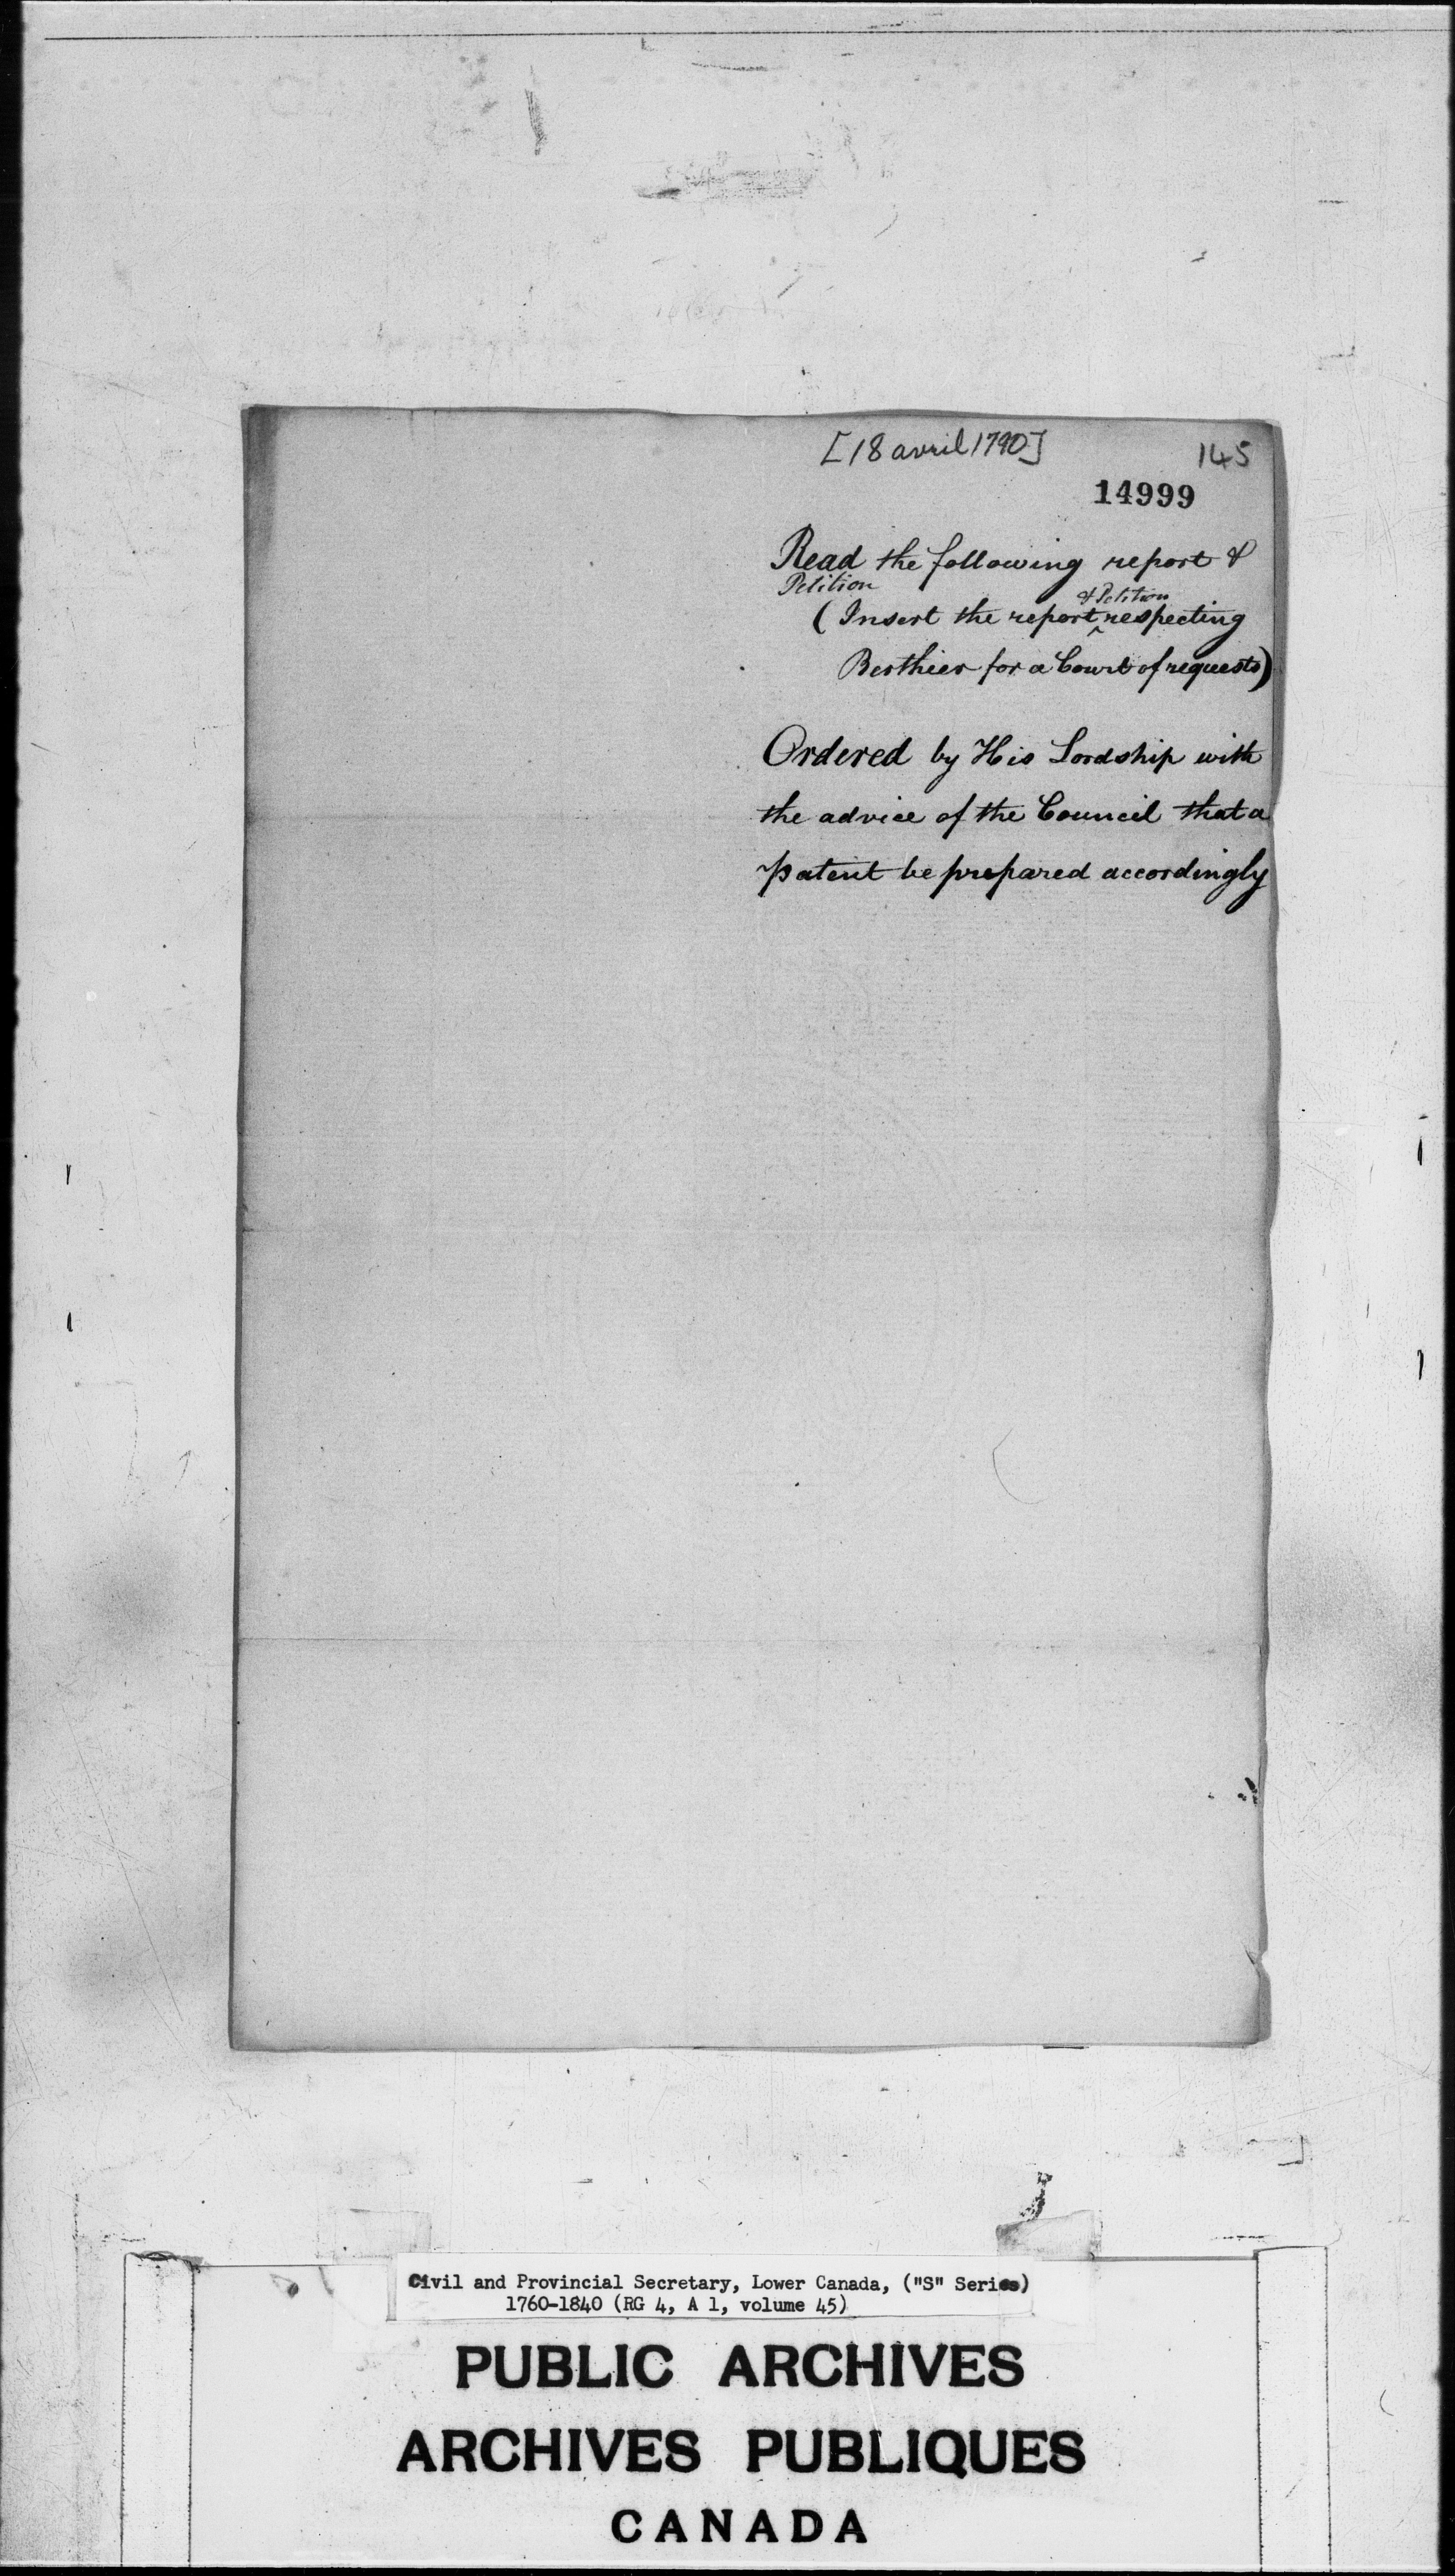 [18 avril 1790]
145
14999
Read the following report &
Petition
& Petition
(Insert the report ^ respecting
Berthier for a Court of requests)
Ordered by His Lordship with
the advice of the Council that a
patent be prepared accordingly
Civil and Provincial Secretary, Lower Canada, ("S" Series)
1760-1840 (RG 4, A 1, volume 45)
PUBLIC ARCHIVES
ARCHIVES PUBLIQUES
CANADA